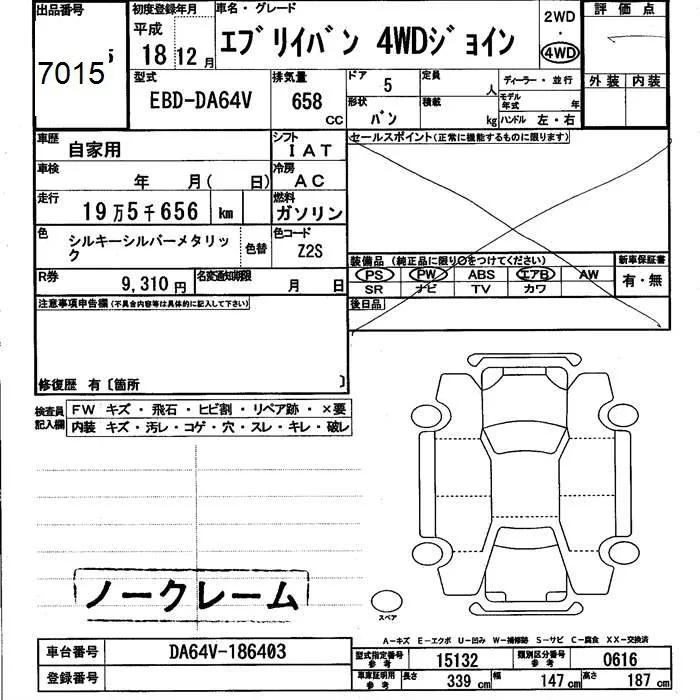 出品番号
7015
初度登録年月
平成
18 12 月
車名・グレード
エブリイバン 4WDジョイン
2WD
・
4WD
評価点
外装 内装
型式
EBD-DA64V
排気量
658
CC
ドア
5
形状
バン
定員
人
積載
kg
ディーラー・並行
モデル年式
年
ハンドル 左・右
車歴
自家用
シフト
IAT
車検
年 月( 日)
冷房
AC
走行
19万5千656 km
燃料
ガソリン
色
シルキーシルバーメタリック
色替
色コード
Z2S
R券
9,310 円
名変通知期限
月 日
セールスポイント(正常に機能するものに限ります)
装備品 (純正品に限り○をつけてください)
PS PW ABS エアB AW
SR ナビ TV カワ
新車保証書
有・無
後日品
注意事項申告欄(不具合内容等は具体的に記入して下さい)
修復歴 有〔箇所 〕
検査員記入欄
FW キズ・飛石・ヒビ割・リペア跡・×要
内装 キズ・汚レ・コゲ・穴・スレ・キレ・破レ
ノークレーム
スペア
A-キズ E-エクボ U-凹み W-補修跡 S-サビ C-腐食 XX-交換済
車台番号
DA64V-186403
登録番号
型式指定番号
参考
15132
類別区分番号
参考
0616
車庫証明用
参考
長さ
339 cm
幅
147 cm
高さ
187 cm